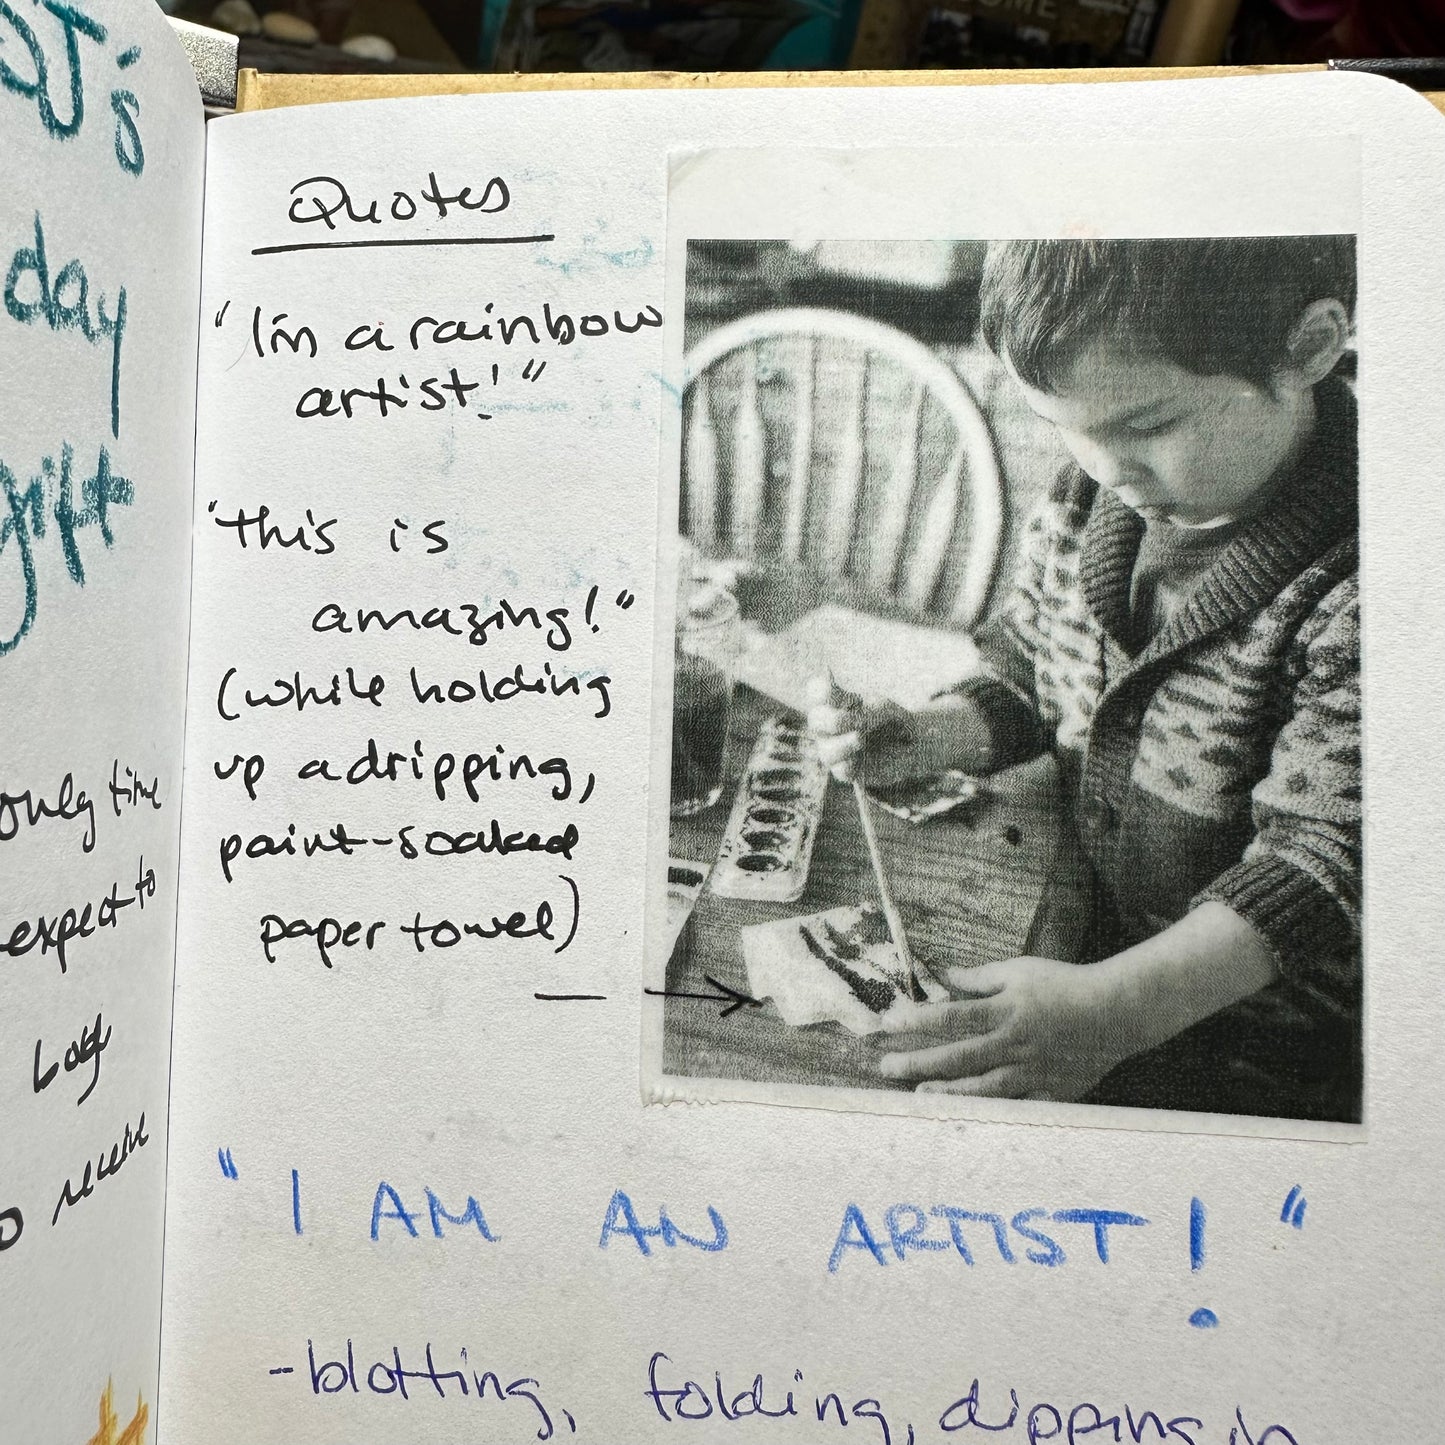 OME
J's
day
gift
only time
expect to
receive
Quotes
"I'm a rainbow
artist!"
"this is
amazing!"
(while holding
up a dripping,
paint-soaked
paper towel)
"I AM AN ARTIST!"
-blotting, folding, dipping in